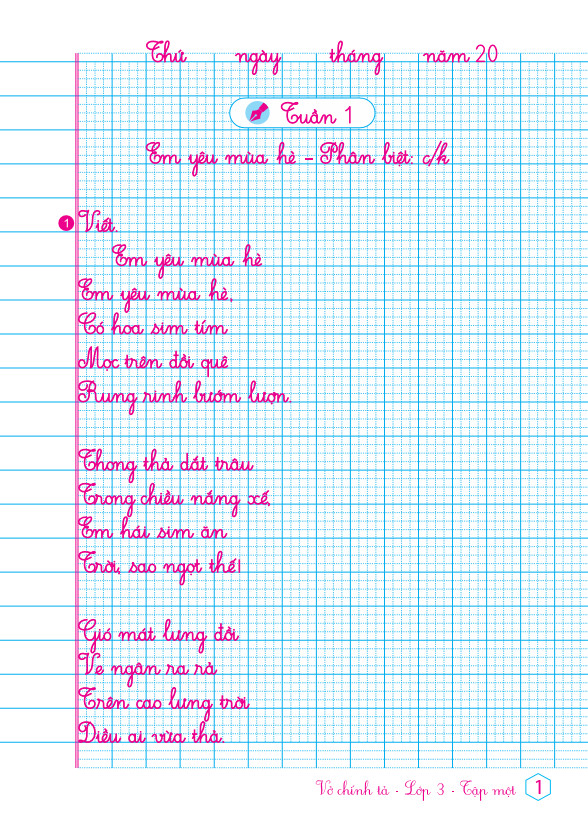 Thứ ngày tháng năm 20
Tuần 1
Em yêu mùa hè – Phân biệt: c/k
1 Viết.
Em yêu mùa hè
Em yêu mùa hè,
Có hoa sim tím
Mọc trên đồi quê
Rung rinh bướm lượn.
Thong thả dắt trâu
Trong chiều nắng xế,
Em hái sim ăn
Trời, sao ngọt thế!
Gió mát lưng đồi
Ve ngân ra rả
Trên cao lưng trời
Diều ai vừa thả.
Vở chính tả - Lớp 3 - Tập một 1